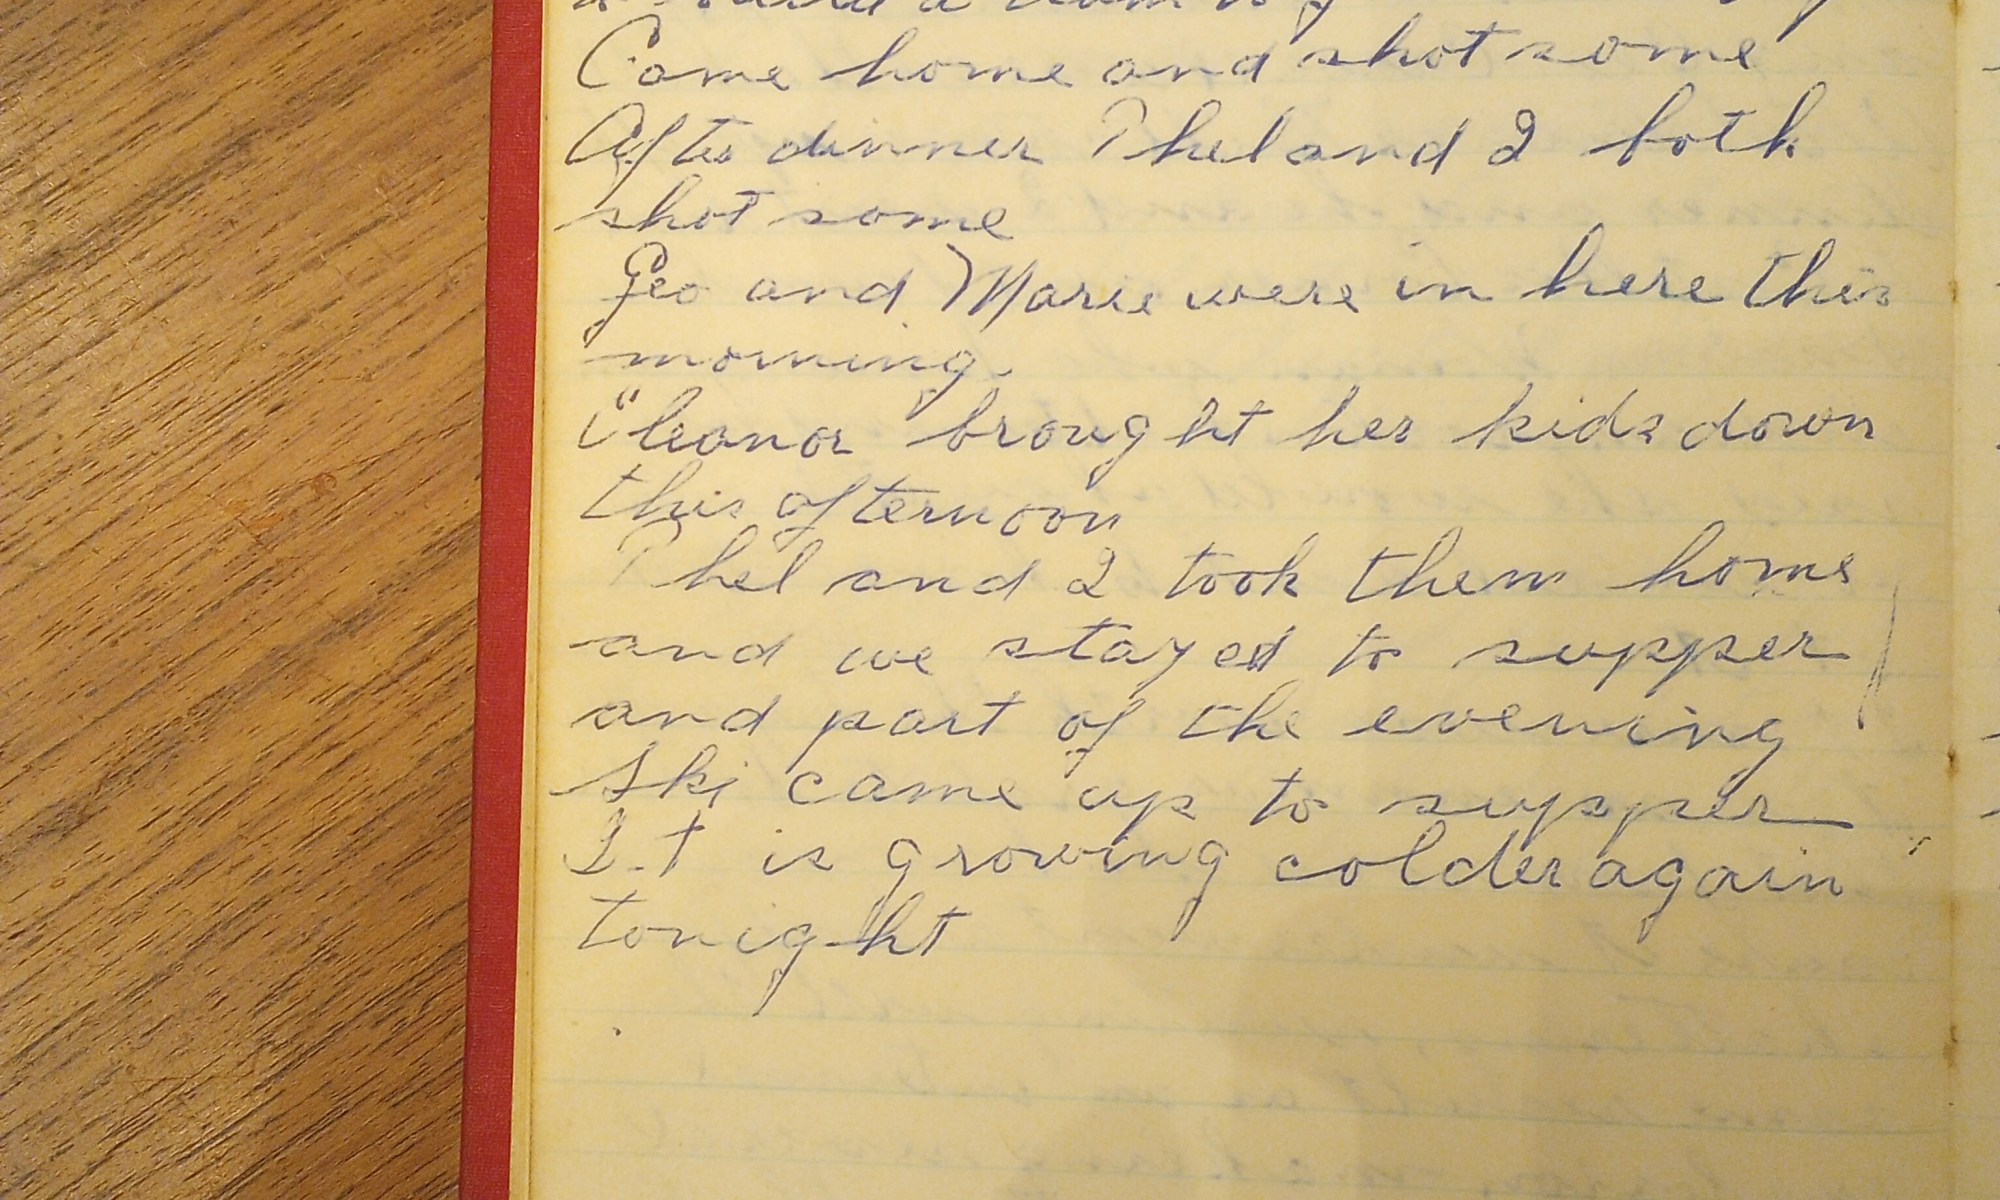 Came home and shot some
After dinner Phel and I both
shot some
Geo and Marie were in here this
morning.
Eleanor brought her kids down
this afternoon
Phel and I took them home
and we stayed to supper
and part of the evening
Ski came up to supper
It is growing colder again
tonight